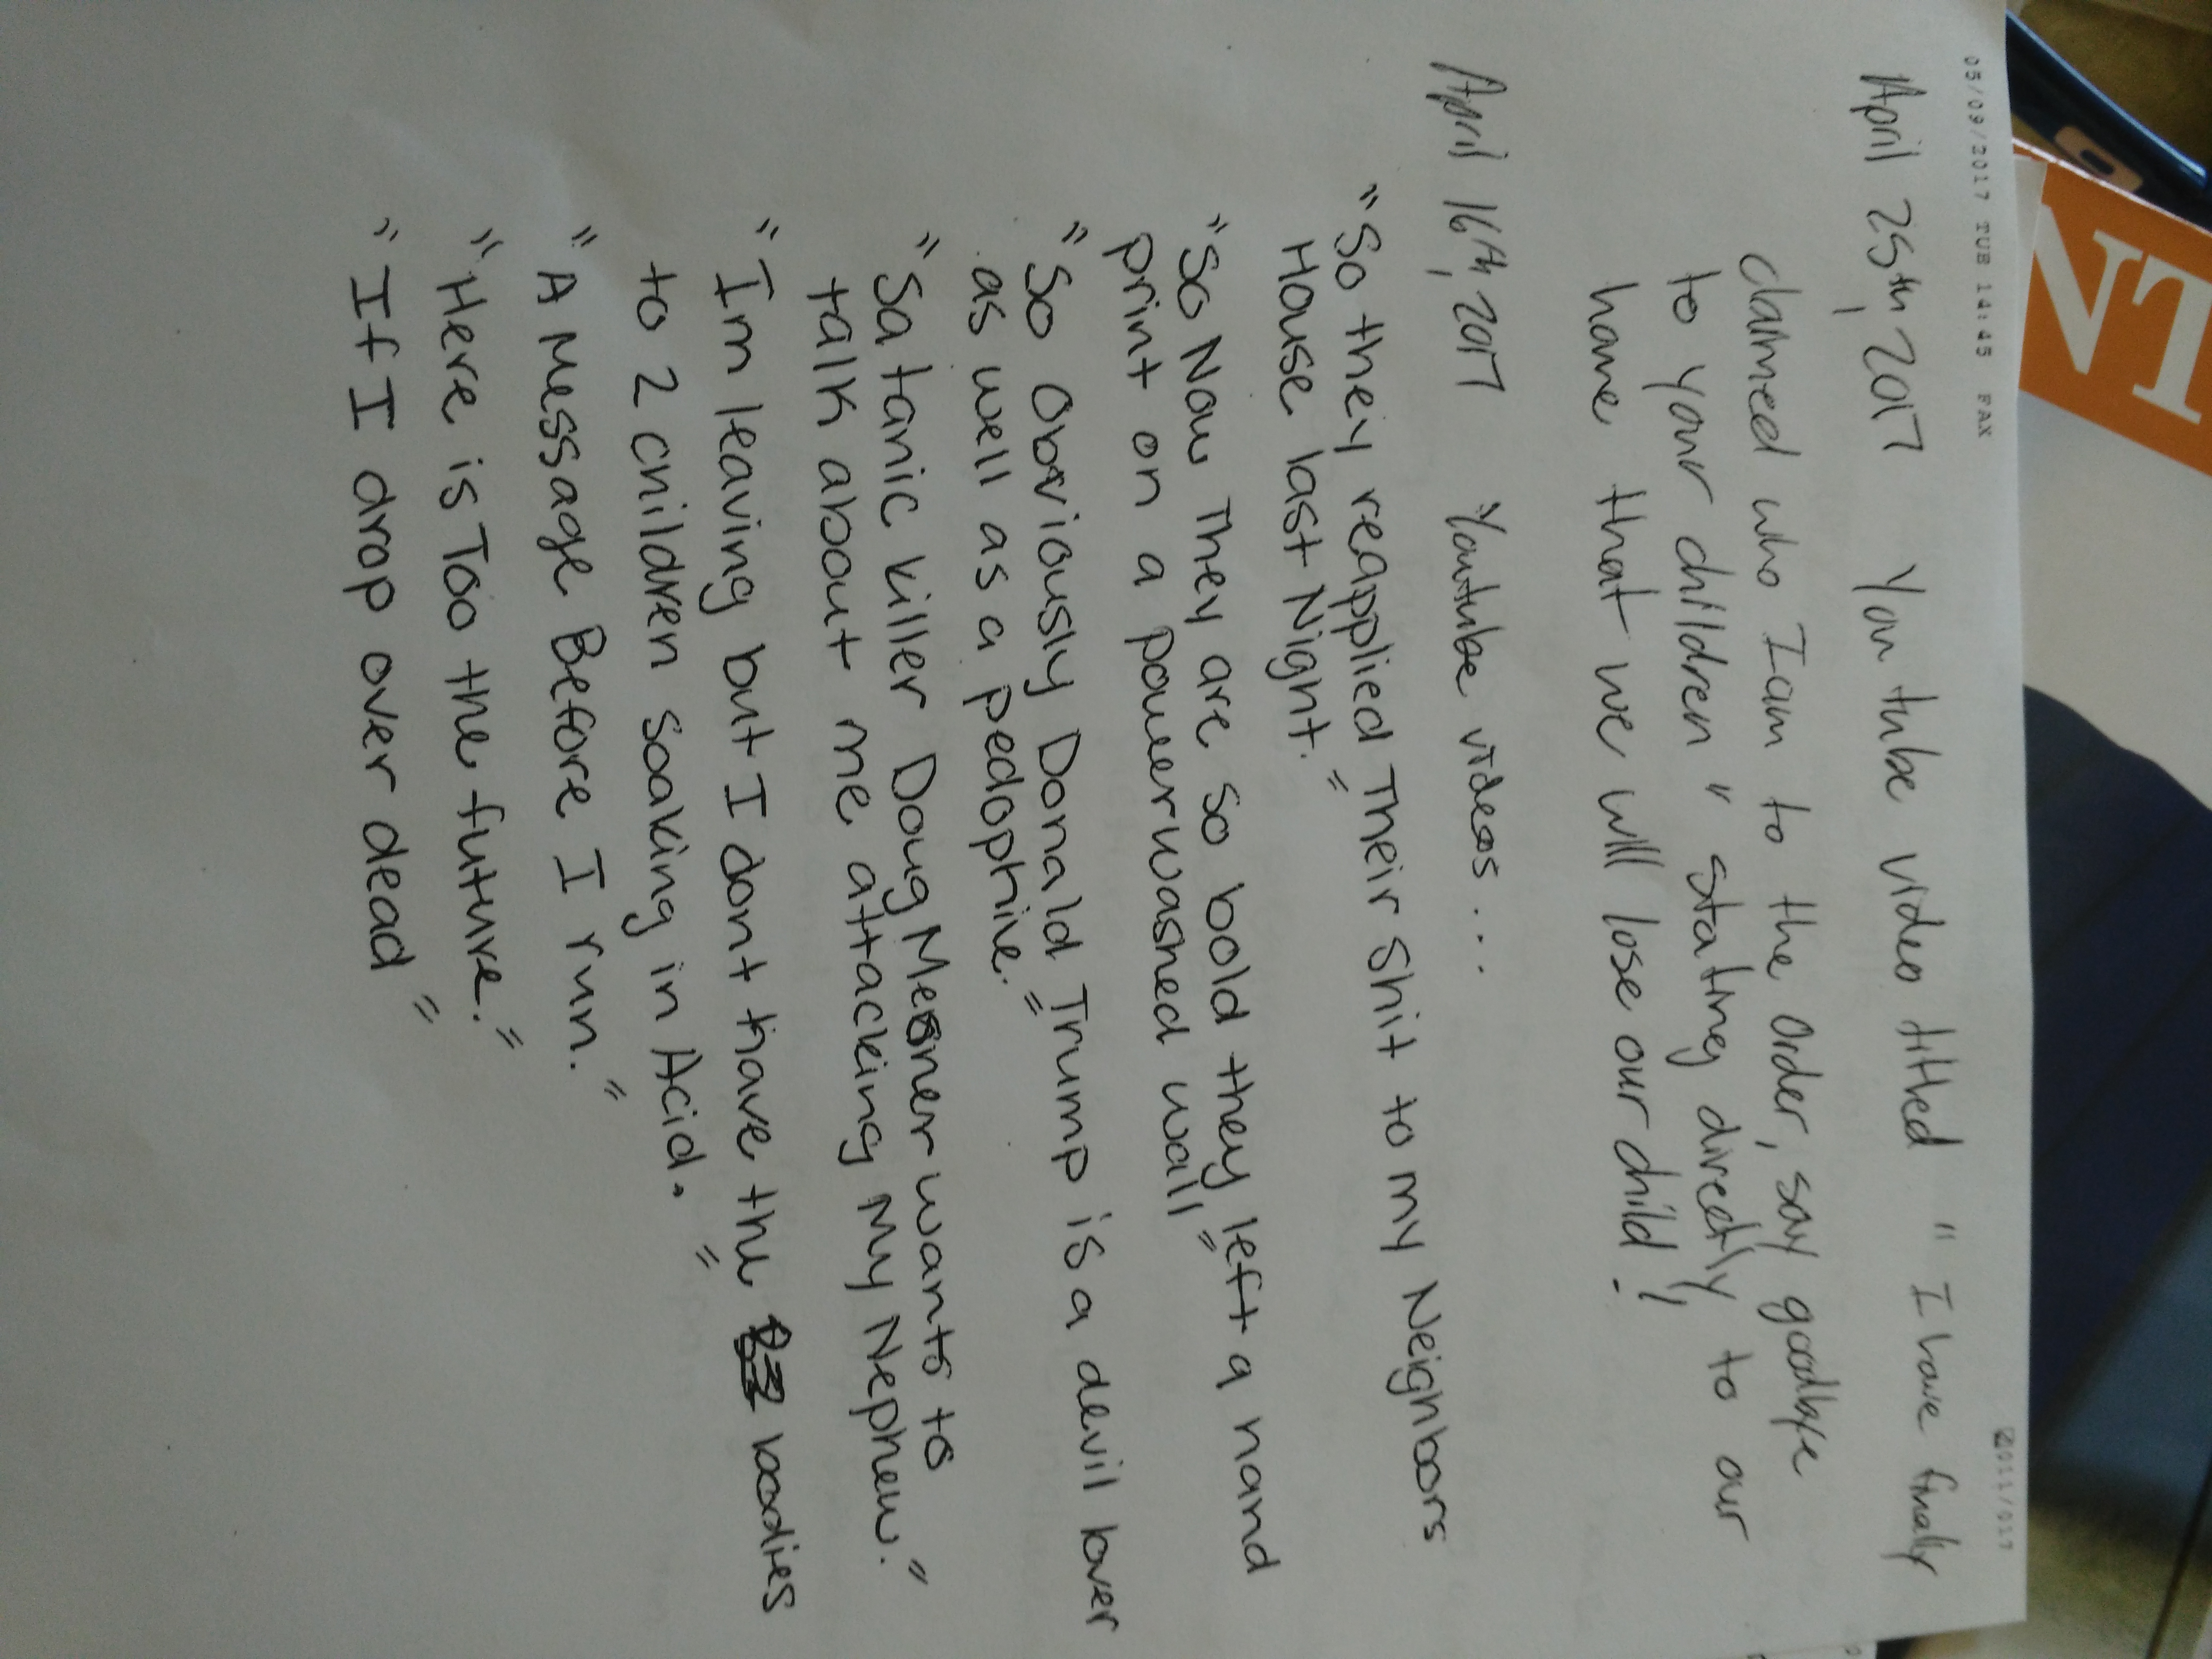 05/09/2017 TUE 14:45 FAX
011/017
April 25th, 2017 You tube video titled "I have finally
claimed who I am to the order, say goodbye
to your children" stating directly to our
home that we will lose our child!
April 16th, 2017 Youtube videos...
"So they reapplied Their shit to my Neighbors
House last Night."
"So Now They are so bold they left a hand
print on a powerwashed wall"
"So Obviously Donald Trump is a devil lover
as well as a pedophile."
"Satanic killer Doug Mesner wants to
talk about me attacking My Nephew."
"Im leaving but I dont have the bodies
to 2 children soaking in Acid."
"A Message Before I run."
"Here is Too the future."
"If I drop over dead"
NT